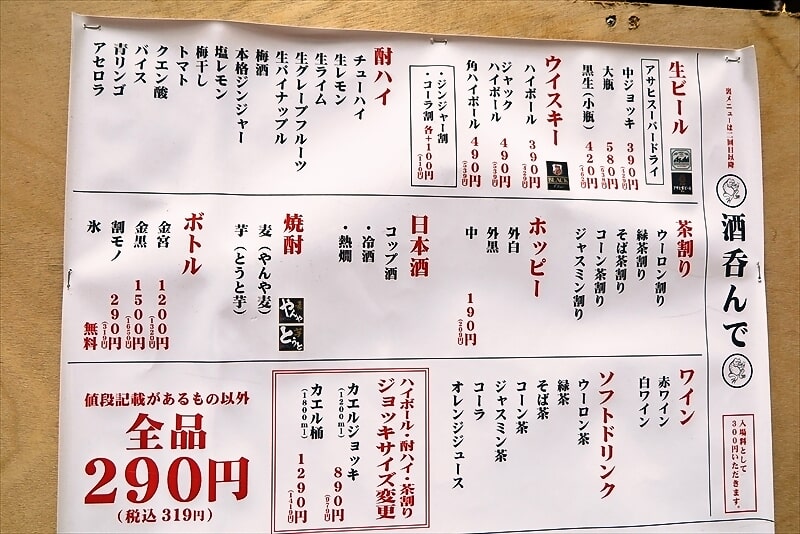 裏メニューは二回目以降
酒呑んで
入場料として
300円いただきます。
生ビール
アサヒスーパードライ
中ジョッキ 390円
(429円)
大瓶 580円
(638円)
黒生(小瓶) 420円
(462円)
ウイスキー
BLACK
ハイボール 390円
(429円)
ジャック
ハイボール 490円
(539円)
角ハイボール 490円
(539円)
・ジンジャー割
・コーラ割 各+100円
(110円)
酎ハイ
チューハイ
生レモン
生ライム
生グレープフルーツ
生パイナップル
梅酒
本格ジンジャー
塩レモン
梅干し
トマト
クエン酸
バイス
青リンゴ
アセロラ
茶割り
ウーロン割り
緑茶割り
そば茶割り
コーン茶割り
ジャスミン割り
ホッピー
外白
外黒
中 190円
(209円)
日本酒
コップ酒
・冷酒
・熱燗
焼酎
麦(やんや麦)
芋(とうと芋)
やんや
とうと
ボトル
金宮 1200円
(1320円)
金黒 1500円
(1650円)
割モノ 290円
(319円)
氷 無料
ワイン
赤ワイン
白ワイン
ソフトドリンク
ウーロン茶
緑茶
そば茶
コーン茶
ジャスミン茶
コーラ
オレンジジュース
ハイボール・酎ハイ・茶割り
ジョッキサイズ変更
カエルジョッキ 890円
(1200ml) (979円)
カエル桶 1290円
(1800ml) (1419円)
値段記載があるもの以外
全品
290円
(税込 319円)